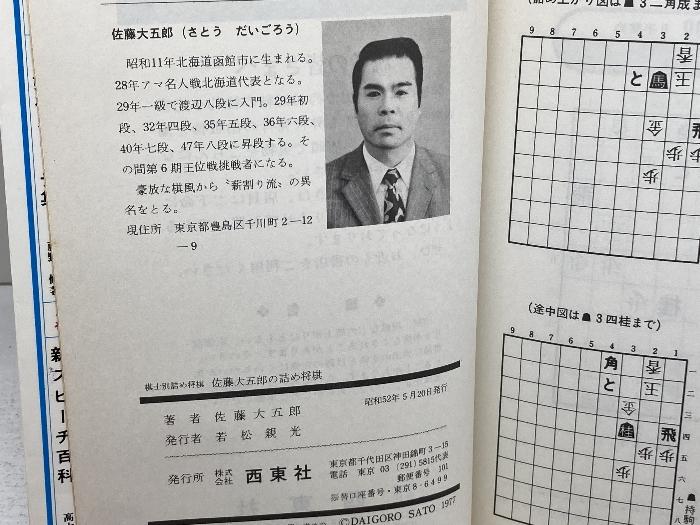 佐藤大五郎（さとう　だいごろう）
昭和11年北海道函館市に生まれる。
28年アマ名人戦北海道代表となる。
29年一級で渡辺八段に入門。29年初
段、32年四段、35年五段、36年六段、
40年七段、47年八段に昇段する。そ
の間第６期王位戦挑戦者になる。
豪放な棋風から〝薪割り流〟の異
名をとる。
現住所　東京都豊島区千川町２—12
—９
棋士別詰め将棋　佐藤大五郎の詰め将棋
昭和52年５月20日発行
著　者　佐藤大五郎
発行者　若松親光
発行所　株式会社　西東社
東京都千代田区神田錦町３—15
電話　東京　03（291）5815代表
郵便番号　101
振替口座番号・東京８-６４９９
©DAIGORO SATO 1977
(詰め上がり図は☗３二角成ま
9 8 7 6 5 4 3 2 1
香
と 馬 玉
金 飛
歩 歩
歩
(途中図は☗３四桂まで)
9 8 7 6 5 4 3 2 1
角 香 一
と 玉 二
金 三
桂 飛 四
歩 歩 五
歩 六
七
新スピーチ百科